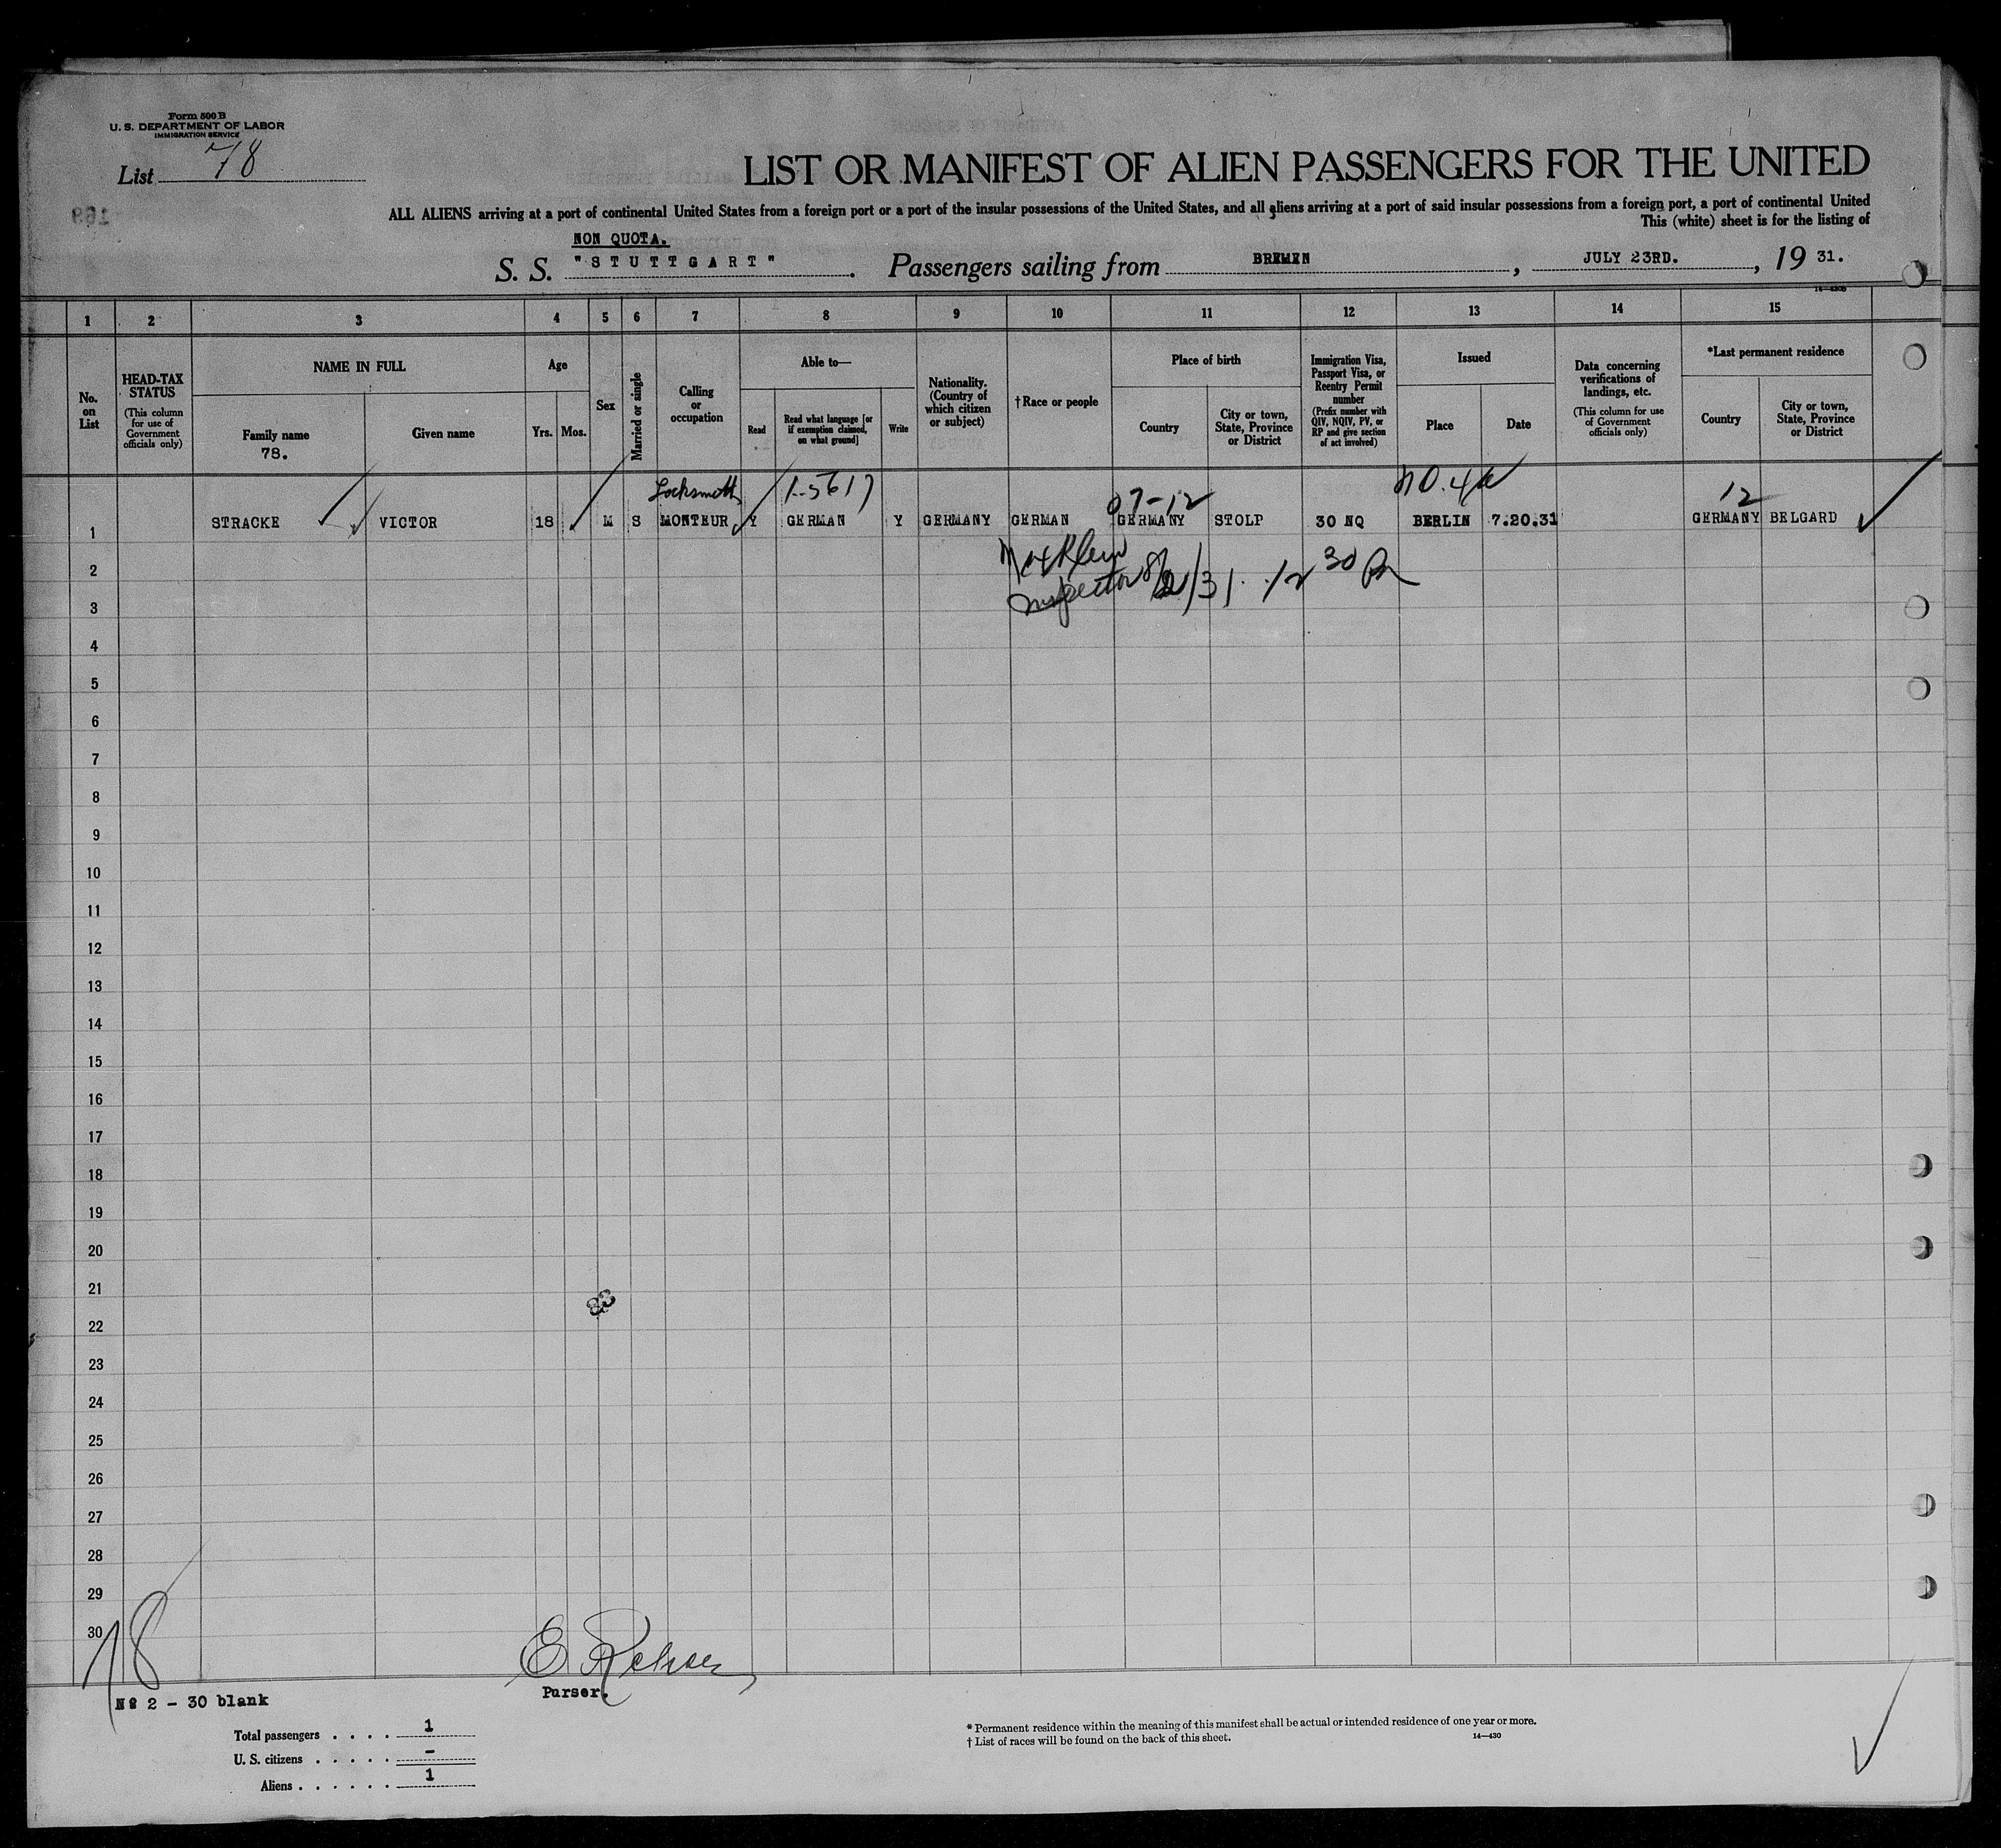 Form 500 B
U. S. DEPARTMENT OF LABOR
IMMIGRATION SERVICE
List 78
169
LIST OR MANIFEST OF ALIEN PASSENGERS FOR THE UNITED
ALL ALIENS arriving at a port of continental United States from a foreign port or a port of the insular possessions of the United States, and all aliens arriving at a port of said insular possessions from a foreign port, a port of continental United
This (white) sheet is for the listing of
NON QUOTA.
S. S. "STUTTGART". Passengers sailing from BREMEN, JULY 23RD., 19 31.
1 2 3 4 5 6 7 8 9 10 11 12 13 14 15
No. on List
HEAD-TAX STATUS (This column for use of Government officials only)
NAME IN FULL
Family name
78.
Given name
Age
Yrs. Mos.
Sex
Married or single
Calling or occupation
Able to—
Read
Read what language [or if exemption claimed, on what ground]
Write
Nationality. (Country of which citizen or subject)
† Race or people
Place of birth
Country
City or town, State, Province or District
Immigration Visa, Passport Visa, or Reentry Permit number (Prefix number with QIV, NQIV, PV, or RP and give section of act involved)
Issued
Place
Date
Data concerning verifications of landings, etc. (This column for use of Government officials only)
*Last permanent residence
Country
City or town, State, Province or District
Locksmith 12
1 STRACKE VICTOR 18 M S MONTEUR Y GERMAN Y GERMANY GERMAN GERMANY STOLP 30 NQ BERLIN 7.20.31 GERMANY BELGARD
2
Inspector 12 30
3
4
5
6
7
8
9
10
11
12
13
14
15
16
17
18
19
20
21
83
22
23
24
25
26
27
28
29
30
78
E
Purser.
No 2 - 30 blank
Total passengers . . . . 1
U. S. citizens . . . . . -
Aliens . . . . . . 1
* Permanent residence within the meaning of this manifest shall be actual or intended residence of one year or more.
† List of races will be found on the back of this sheet. 14—430